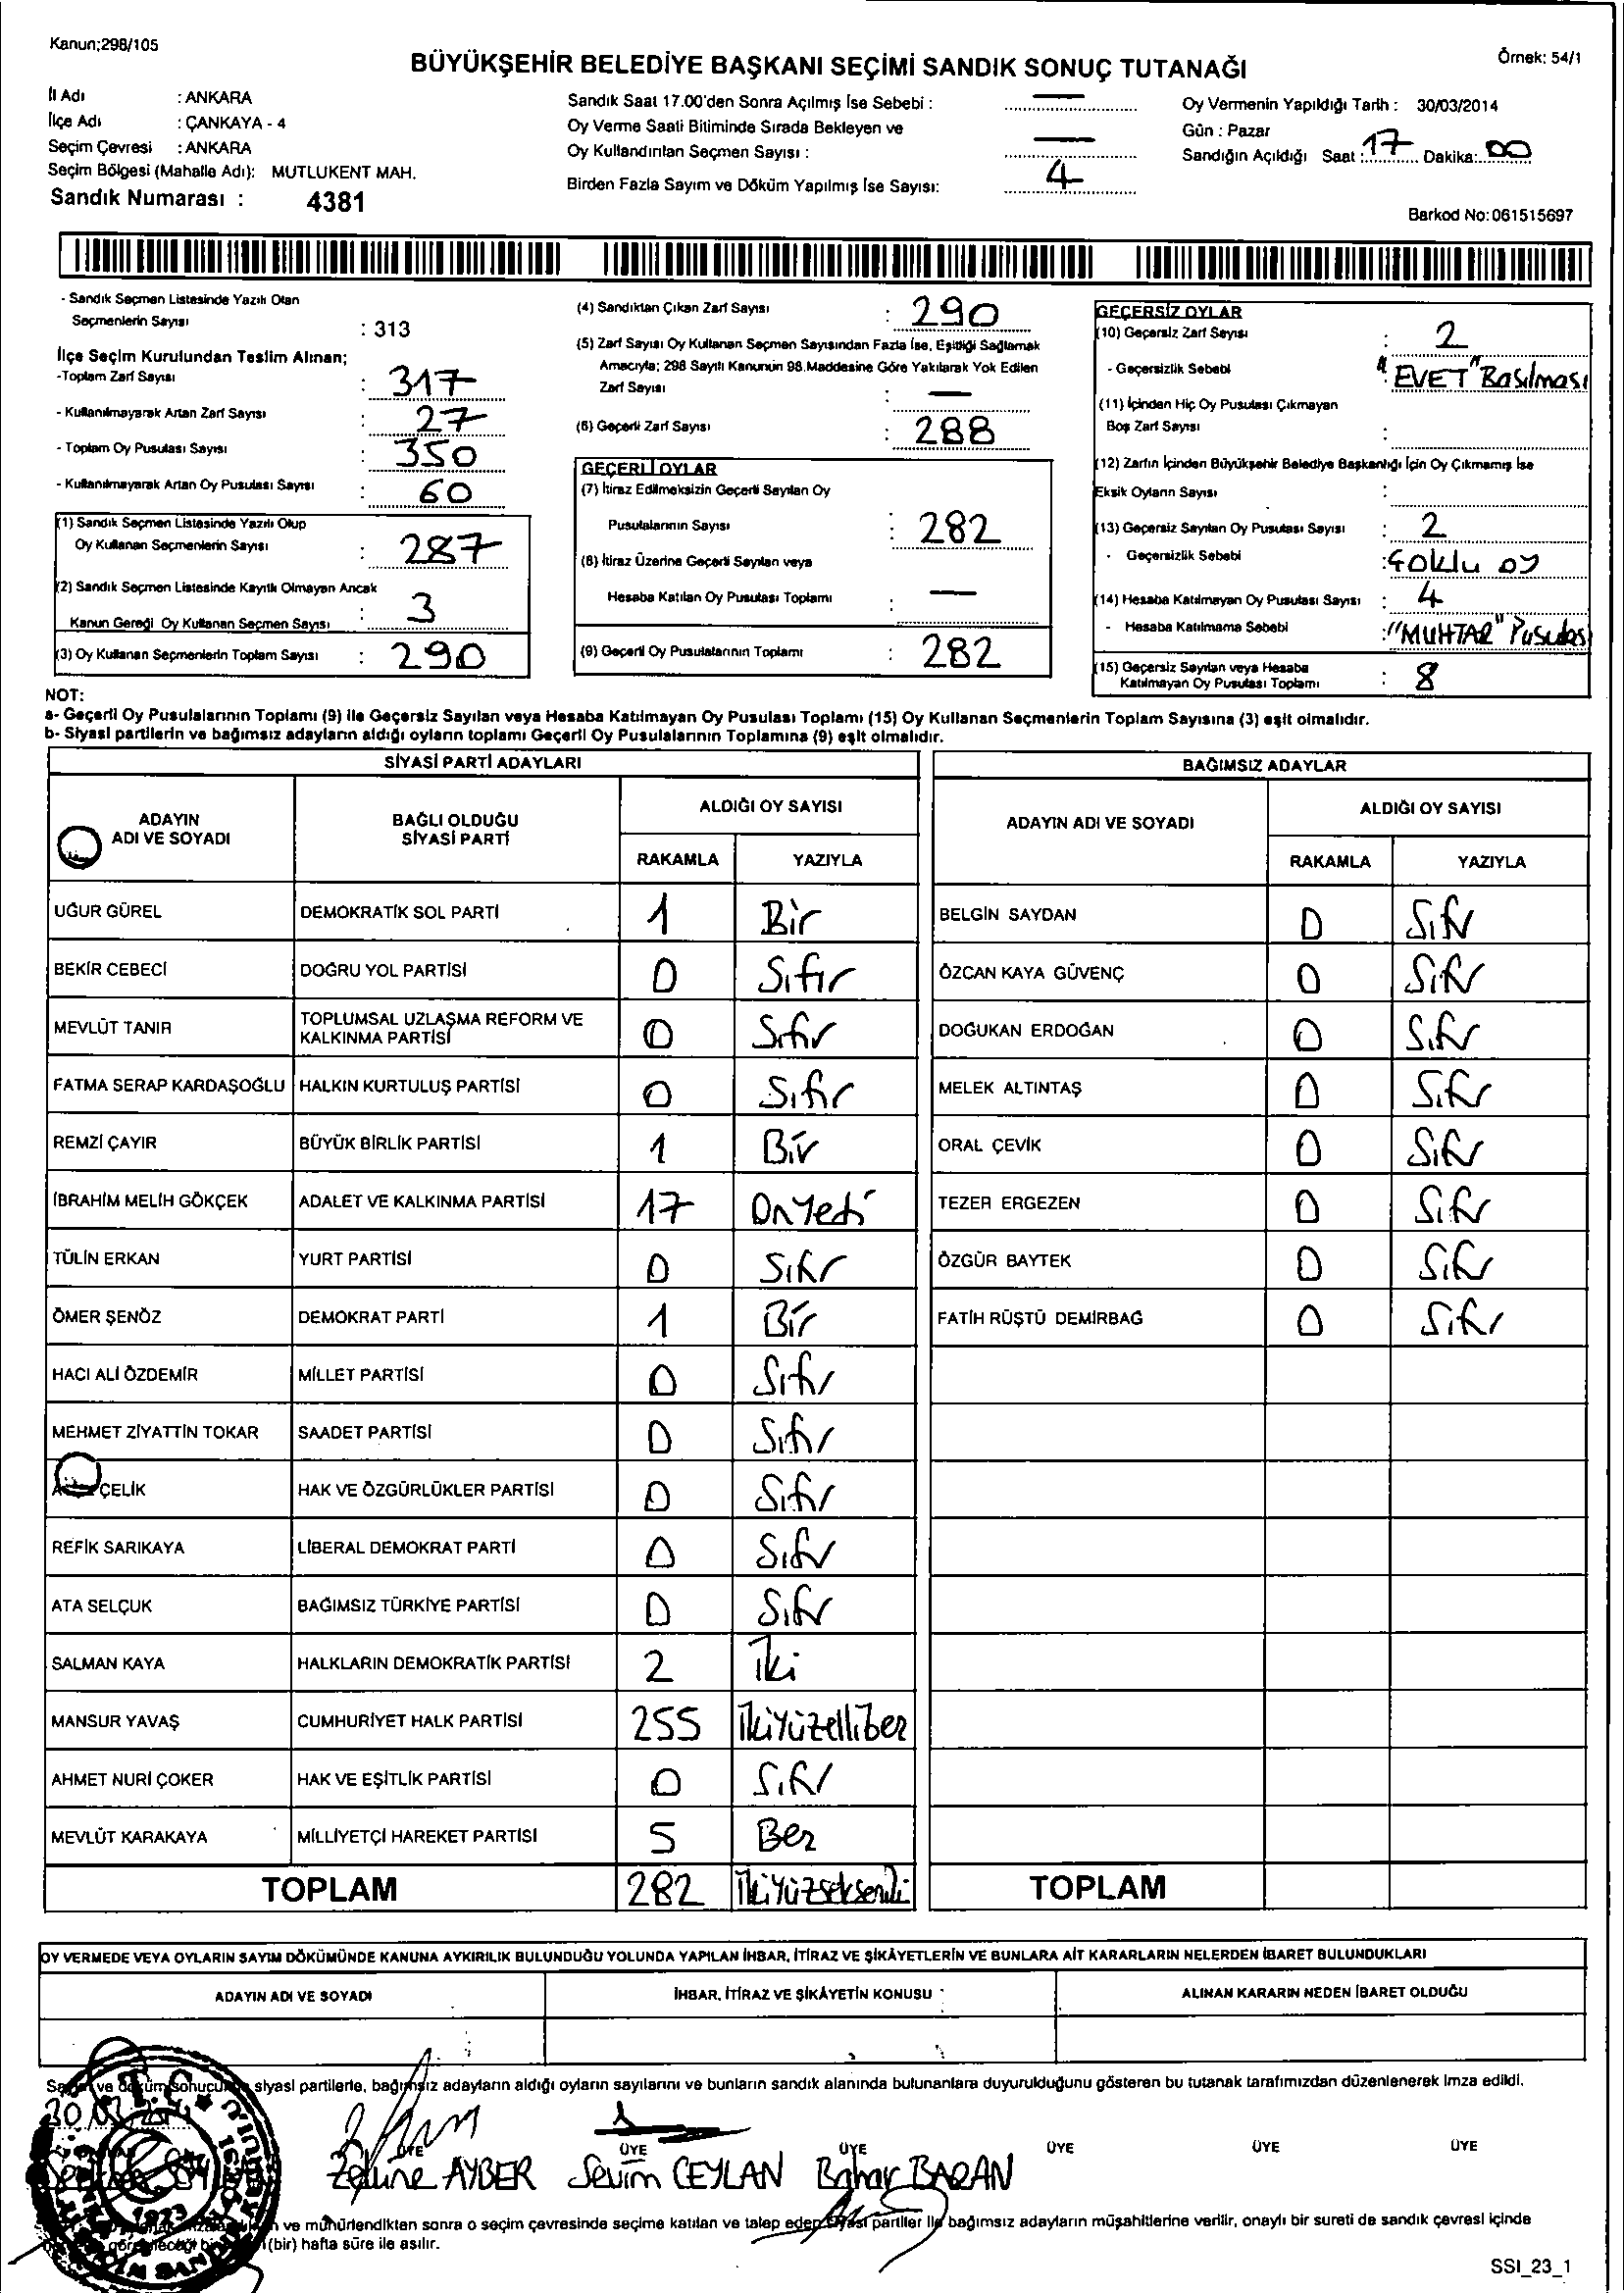 Kanun;298/105
BÜYÜKŞEHİR BELEDİYE BAŞKANI SEÇİMİ SANDIK SONUÇ TUTANAĞI
Örnek: 54/1
İl Adı : ANKARA
İlçe Adı : ÇANKAYA - 4
Seçim Çevresi : ANKARA
Seçim Bölgesi (Mahalle Adı): MUTLUKENT MAH.
Sandık Numarası : 4381
Sandık Saat 17.00'den Sonra Açılmış İse Sebebi : —
Oy Verme Saati Bitiminde Sırada Bekleyen ve
Oy Kullandırılan Seçmen Sayısı : —
Birden Fazla Sayım ve Döküm Yapılmış İse Sayısı: 4
Oy Vermenin Yapıldığı Tarih : 30/03/2014
Gün : Pazar
Sandığın Açıldığı Saat : 17 Dakika: 00
Barkod No: 061515697
- Sandık Seçmen Listesinde Yazılı Olan
Seçmenlerin Sayısı : 313
İlçe Seçim Kurulundan Teslim Alınan;
-Toplam Zarf Sayısı : 317
- Kullanılmayarak Artan Zarf Sayısı : 27
- Toplam Oy Pusulası Sayısı : 350
- Kullanılmayarak Artan Oy Pusulası Sayısı : 60
(1) Sandık Seçmen Listesinde Yazılı Olup
Oy Kullanan Seçmenlerin Sayısı : 287
(2) Sandık Seçmen Listesinde Kayıtlı Olmayan Ancak
Kanun Gereği Oy Kullanan Seçmen Sayısı : 3
(3) Oy Kullanan Seçmenlerin Toplam Sayısı : 290
(4) Sandıktan Çıkan Zarf Sayısı : 290
(5) Zarf Sayısı Oy Kullanan Seçmen Sayısından Fazla İse, Eşitliği Sağlamak
Amacıyla; 298 Sayılı Kanunun 98.Maddesine Göre Yakılarak Yok Edilen
Zarf Sayısı : —
(6) Geçerli Zarf Sayısı : 288
GEÇERLİ OYLAR
(7) İtiraz Edilmeksizin Geçerli Sayılan Oy
Pusulalarının Sayısı : 282
(8) İtiraz Üzerine Geçerli Sayılan veya
Hesaba Katılan Oy Pusulası Toplamı : —
(9) Geçerli Oy Pusulalarının Toplamı : 282
GEÇERSİZ OYLAR
(10) Geçersiz Zarf Sayısı : 2
- Geçersizlik Sebebi : "EVET" Basılması
(11) İçinden Hiç Oy Pusulası Çıkmayan
Boş Zarf Sayısı :
(12) Zarfın İçinden Büyükşehir Belediye Başkanlığı İçin Oy Çıkmamış İse
Eksik Oyların Sayısı :
(13) Geçersiz Sayılan Oy Pusulası Sayısı : 2
- Geçersizlik Sebebi : Çoklu oy
(14) Hesaba Katılmayan Oy Pusulası Sayısı : 4
- Hesaba Katılmama Sebebi : "MUHTAR" Pusulası
(15) Geçersiz Sayılan veya Hesaba
Katılmayan Oy Pusulası Toplamı : 8
NOT:
a- Geçerli Oy Pusulalarının Toplamı (9) ile Geçersiz Sayılan veya Hesaba Katılmayan Oy Pusulası Toplamı (15) Oy Kullanan Seçmenlerin Toplam Sayısına (3) eşit olmalıdır.
b- Siyasi partilerin ve bağımsız adayların aldığı oyların toplamı Geçerli Oy Pusulalarının Toplamına (9) eşit olmalıdır.
SİYASİ PARTİ ADAYLARI
ADAYIN ADI VE SOYADI BAĞLI OLDUĞU SİYASİ PARTİ ALDIĞI OY SAYISI
RAKAMLA YAZIYLA
UĞUR GÜREL DEMOKRATİK SOL PARTİ 1 Bir
BEKİR CEBECİ DOĞRU YOL PARTİSİ 0 Sıfır
MEVLÜT TANIR TOPLUMSAL UZLAŞMA REFORM VE KALKINMA PARTİSİ 0 Sıfır
FATMA SERAP KARDAŞOĞLU HALKIN KURTULUŞ PARTİSİ 0 Sıfır
REMZİ ÇAYIR BÜYÜK BİRLİK PARTİSİ 1 Bir
İBRAHİM MELİH GÖKÇEK ADALET VE KALKINMA PARTİSİ 17 Onyedi
TÜLİN ERKAN YURT PARTİSİ 0 Sıfır
ÖMER ŞENÖZ DEMOKRAT PARTİ 1 Bir
HACI ALİ ÖZDEMİR MİLLET PARTİSİ 0 Sıfır
MEHMET ZİYATTİN TOKAR SAADET PARTİSİ 0 Sıfır
ÇELİK HAK VE ÖZGÜRLÜKLER PARTİSİ 0 Sıfır
REFİK SARIKAYA LİBERAL DEMOKRAT PARTİ 0 Sıfır
ATA SELÇUK BAĞIMSIZ TÜRKİYE PARTİSİ 0 Sıfır
SALMAN KAYA HALKLARIN DEMOKRATİK PARTİSİ 2 İki
MANSUR YAVAŞ CUMHURİYET HALK PARTİSİ 255 İkiYüzelliBeş
AHMET NURİ ÇOKER HAK VE EŞİTLİK PARTİSİ 0 Sıfır
MEVLÜT KARAKAYA MİLLİYETÇİ HAREKET PARTİSİ 5 Beş
TOPLAM 282 İkiYüzsekseniki
BAĞIMSIZ ADAYLAR
ADAYIN ADI VE SOYADI ALDIĞI OY SAYISI
RAKAMLA YAZIYLA
BELGİN SAYDAN 0 Sıfır
ÖZCAN KAYA GÜVENÇ 0 Sıfır
DOĞUKAN ERDOĞAN 0 Sıfır
MELEK ALTINTAŞ 0 Sıfır
ORAL ÇEVİK 0 Sıfır
TEZER ERGEZEN 0 Sıfır
ÖZGÜR BAYTEK 0 Sıfır
FATİH RÜŞTÜ DEMİRBAĞ 0 Sıfır
TOPLAM
OY VERMEDE VEYA OYLARIN SAYIM DÖKÜMÜNDE KANUNA AYKIRILIK BULUNDUĞU YOLUNDA YAPILAN İHBAR, İTİRAZ VE ŞİKÂYETLERİN VE BUNLARA AİT KARARLARIN NELERDEN İBARET BULUNDUKLARI
ADAYIN ADI VE SOYADI İHBAR, İTİRAZ VE ŞİKÂYETİN KONUSU ALINAN KARARIN NEDEN İBARET OLDUĞU
siyasi partilerle, bağımsız adayların aldığı oyların sayılarını ve bunların sandık alanında bulunanlara duyurulduğunu gösteren bu tutanak tarafımızdan düzenlenerek imza edildi.
ÜYE ÜYE ÜYE ÜYE ÜYE ÜYE
AYBER Sevim CEYLAN Bahar BARAN
ve mühürlendikten sonra o seçim çevresinde seçime katılan ve talep eden siyasi partiler ile bağımsız adayların müşahitlerine verilir, onaylı bir sureti de sandık çevresi içinde
(bir) hafta süre ile asılır.
T.C.
1923
SSI_23_1